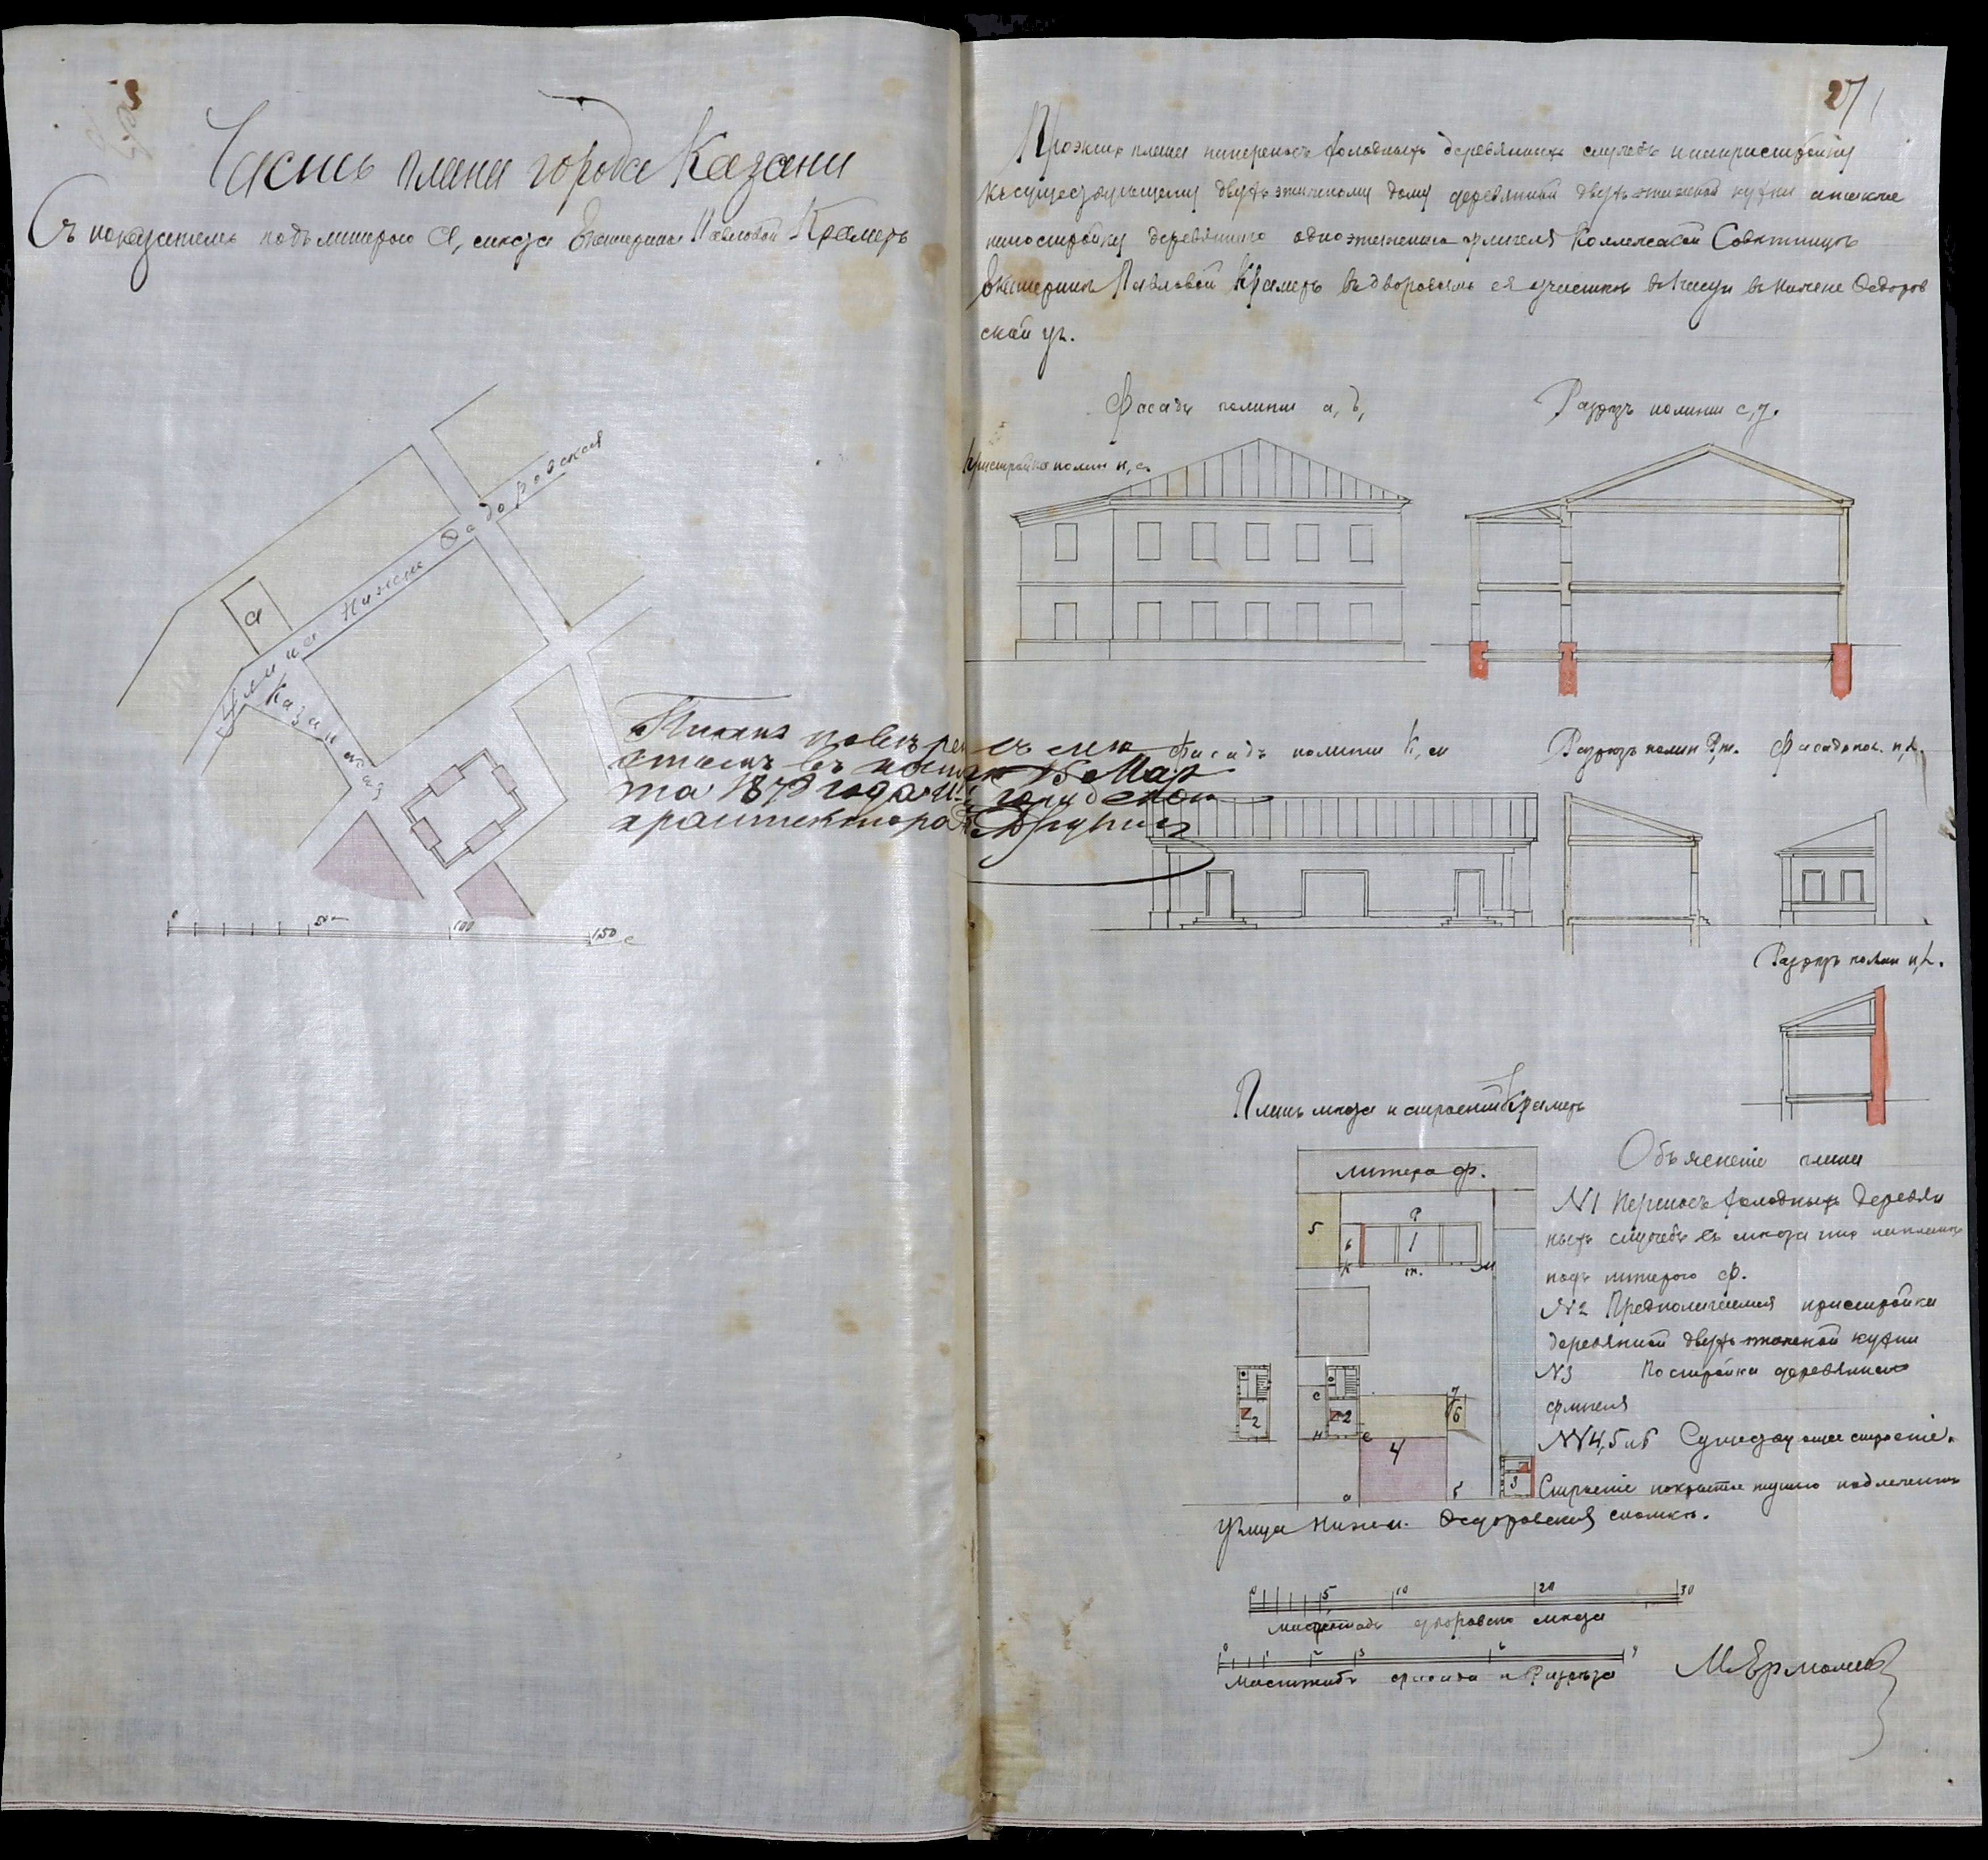 Часть плана города Казани
Съ показаніемъ подъ литерою А, места Екатерины Павловой Крамеръ
Улица Нижне Федоровская
Казанская
А
0 50 100 150 с
Планъ поверенъ съ
местомъ въ натуре 15 Мар
та 187 года. городской
архитекторъ
27
Проэктъ плана на переносъ холодныхъ деревянныхъ службъ и на пристройку
къ существующему двухъ этажному дому деревянной двухъ этажной кухни а также
на постройку деревяннаго одноэтажнаго флигеля Коллежской Советницы
Екатерины Павловой Крамеръ въ дворовомъ ея участке в 1 части въ Нижне Федоров
ской ул.
Фасадъ по линіи а, б,
Разрезъ по линіи с, д.
пристройка по лин н, е.
Фасадъ по линіи К, м
Разрезъ по лин Р, т.
Фасадъ по л. н,
Разрезъ по лин н,
Планъ места и строеній Крамеръ
литера ф.
5
6
Р
1
К
т.
м
2
с
2
н
е
4
д
6
а
б
3
Улица Нижн. Федоровская
Объясненіе плана
N1 Переносъ холодныхъ деревян
ныхъ службъ съ места
подъ литерою ф.
N2 Предполагаемая пристройка
деревянной двухъ этажной кухни
N3 Постройка деревяннаго
флигеля
NN 4, 5 и 6 Существующее строеніе.
Строеніе покрыто
0 5 10 20 30
Масштабъ двороваго места
0 1 2 3 6 9
Масштабъ фасада и Разреза
М. Ермолаев